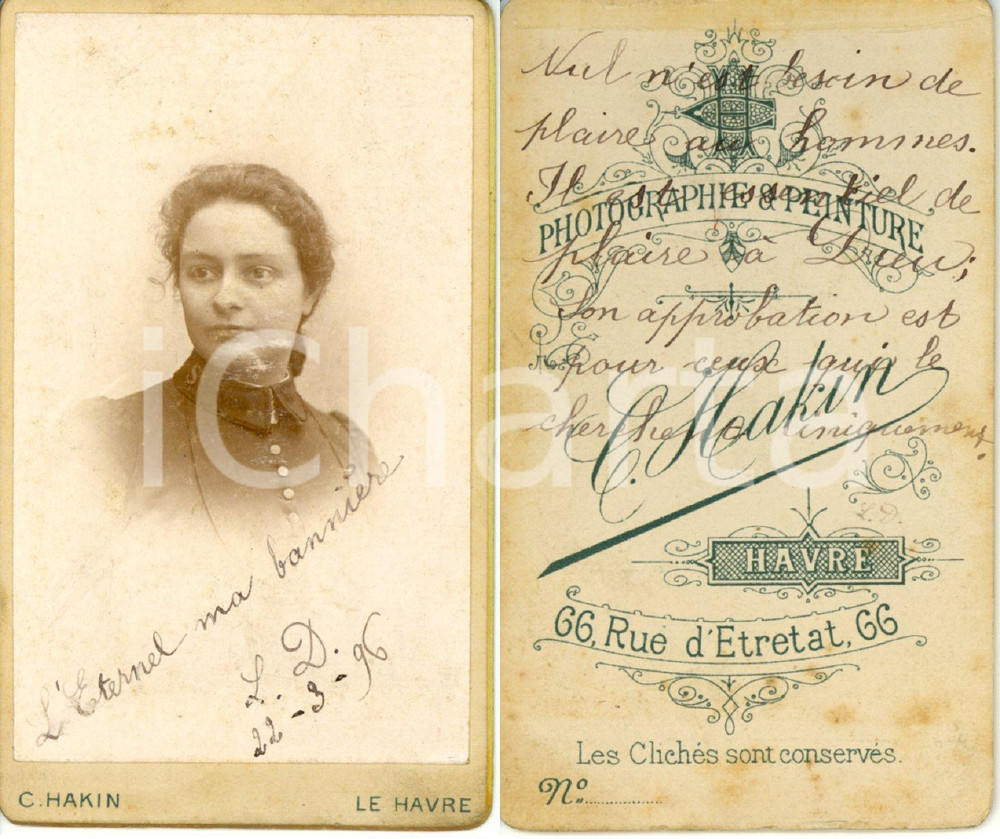 L'Eternel ma bannière
L. D.
22-3-96
C. HAKIN LE HAVRE
iCharta
Nul n'est besoin de
plaire aux hommes.
Il est essentiel de
plaire à Dieu;
Son approbation est
pour ceux qui le
cherchent uniquement.
L.D.
PHOTOGRAPHIE & PEINTURE
C. Hakin
HAVRE
66, Rue d'Etretat, 66
Les Clichés sont conservés.
Nº